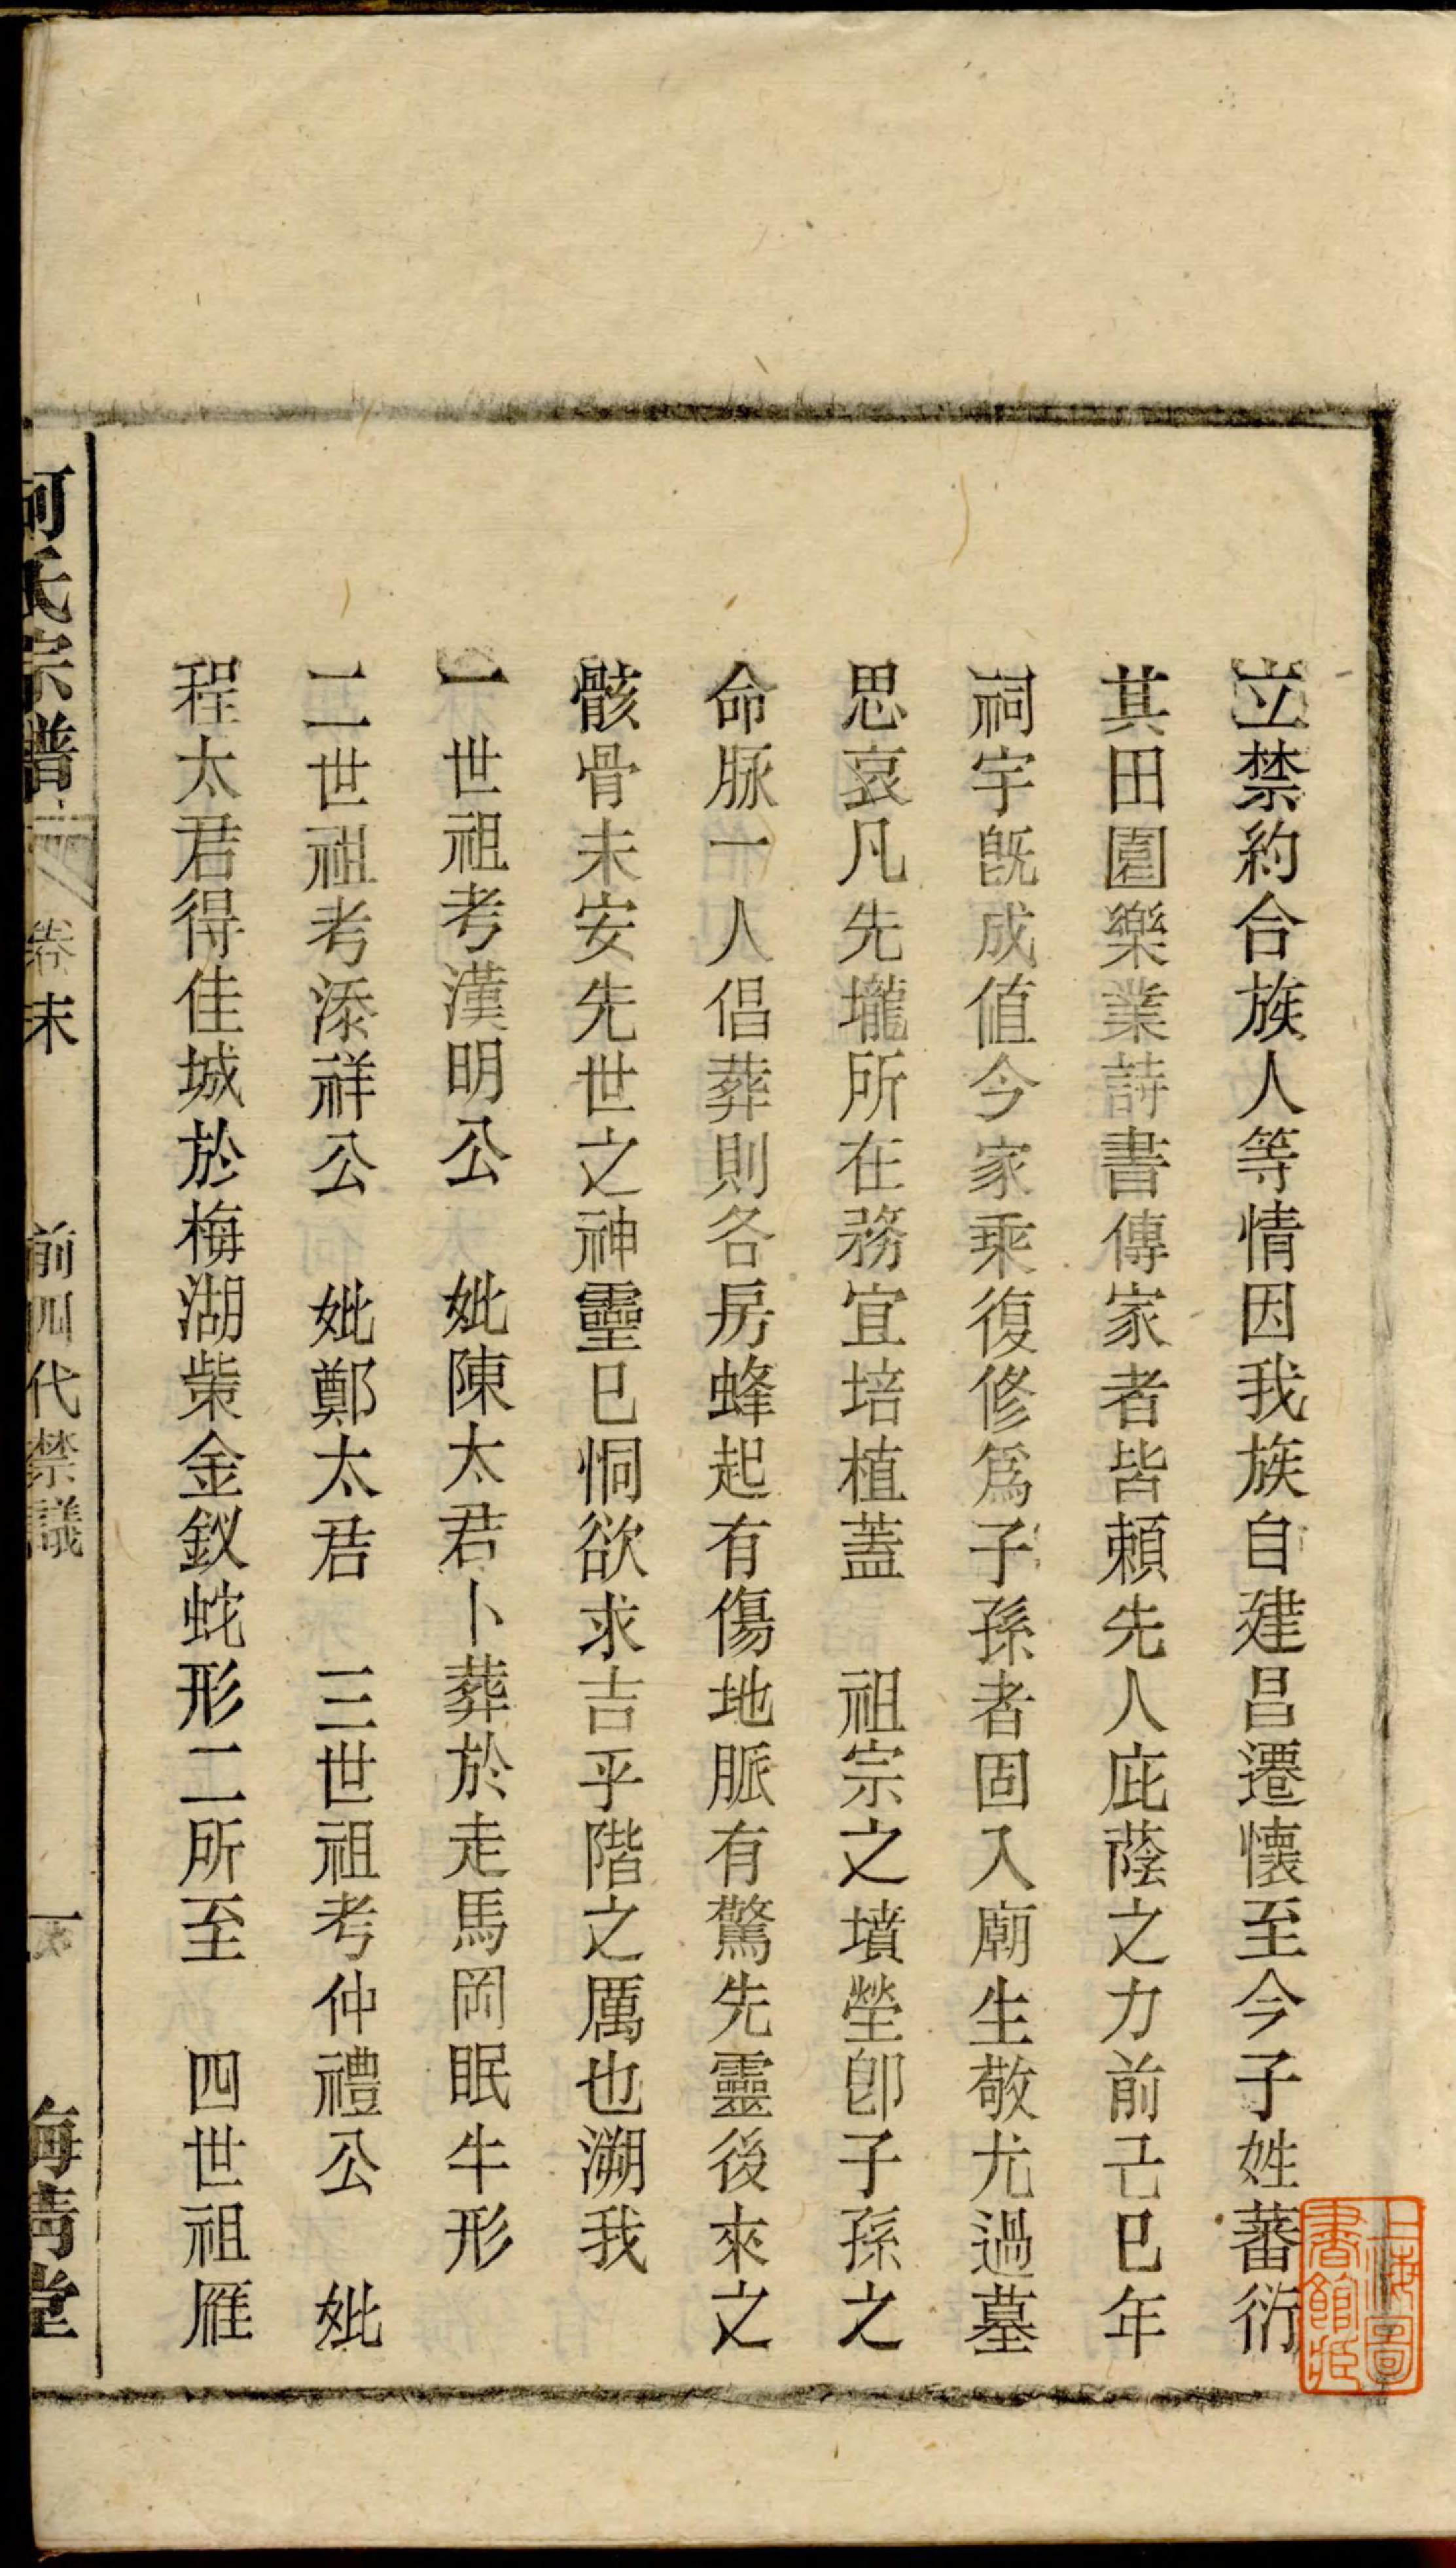 立禁約合族人等情因我族自建昌遷懷至今子姓蕃衍
其田園樂業詩書傳家者皆賴先人庇蔭之力前己巳年
祠宇旣成值今家乘復修爲子孫者固入廟生敬尤過墓
思哀凡先壠所在務宜培植蓋 祖宗之墳塋卽子孫之
命脉一人倡葬則各房蜂起有傷地脈有驚先靈後來之
骸骨未安先世之神靈已恫欲求吉乎階之厲也溯我
一世祖考漢明公 妣陳太君卜葬於走馬岡眠牛形
二世祖考添祥公 妣鄭太君 三世祖考仲禮公 妣
程太君得佳城於梅湖柴金釵蛇形二所至 四世祖雁
柯氏宗譜 卷末 前四代禁議 一 梅靑堂
上海圖書館藏